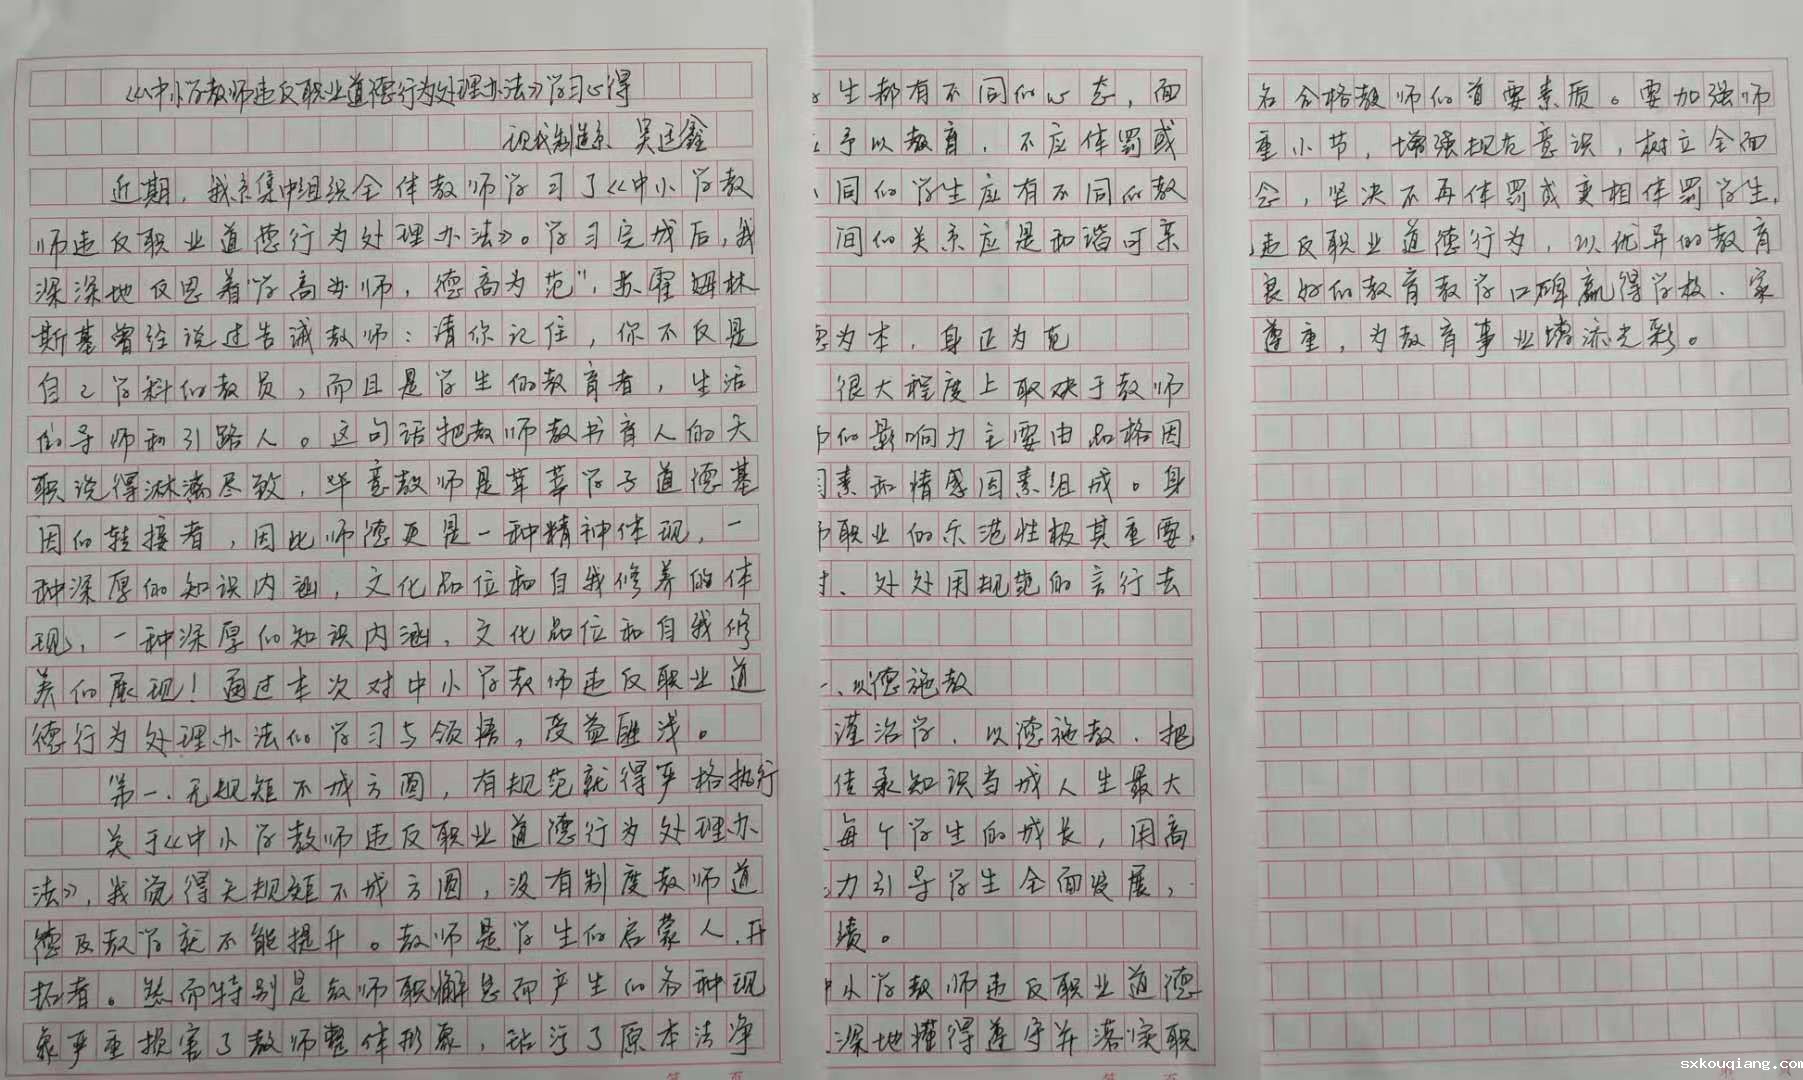 《中小学教师违反职业道德行为处理办法》学习心得
现代制造系 吴廷鑫
近期，我系集中组织全体教师学习了《中小学教
师违反职业道德行为处理办法》。学习完成后，我
深深地反思着"学高为师，德高为范"，苏霍姆林
斯基曾经说过告诫教师：请你记住，你不仅是
自己学科的教员，而且是学生的教育者，生活
的导师和引路人。这句话把教师教书育人的天
职说得淋漓尽致，毕竟教师是莘莘学子道德基
因的转接者，因此师德更是一种精神体现，一
种深厚的知识内涵，文化品位和自我修养的体
现，一种深厚的知识内涵，文化品位和自我修
养的展现！通过本次对中小学教师违反职业道
德行为处理办法的学习与领悟，受益匪浅。
第一、无规矩不成方圆，有规范就得严格执行
关于《中小学教师违反职业道德行为处理办
法》，我觉得无规矩不成方圆，没有制度教师道
德及教学就不能提升。教师是学生的启蒙人、开
拓者。然而特别是教师职懈怠而产生的各种现
象严重损害了教师整体形象，玷污了原本洁净
生都有不同的心态，面
予以教育，不应体罚或
同的学生应有不同的教
间的关系应是和谐可亲
为本，身正为范
很大程度上取决于教师
的影响力主要由品格因
素和情感因素组成。身
职业的示范性极其重要，
处处用规范的言行去
、以德施教
谨治学，以德施教，把
传承知识当成人生最大
每个学生的成长，用高
力引导学生全面发展，
绩。
小学教师违反职业道德
深地懂得遵守并落实职
名合格教师的首要素质。要加强师
重小节，增强规范意识，树立全面
念，坚决不再体罚或变相体罚学生，
违反职业道德行为，以优异的教育
良好的教育教学口碑赢得学校、家
尊重，为教育事业增添光彩。
sxkouqiang.com